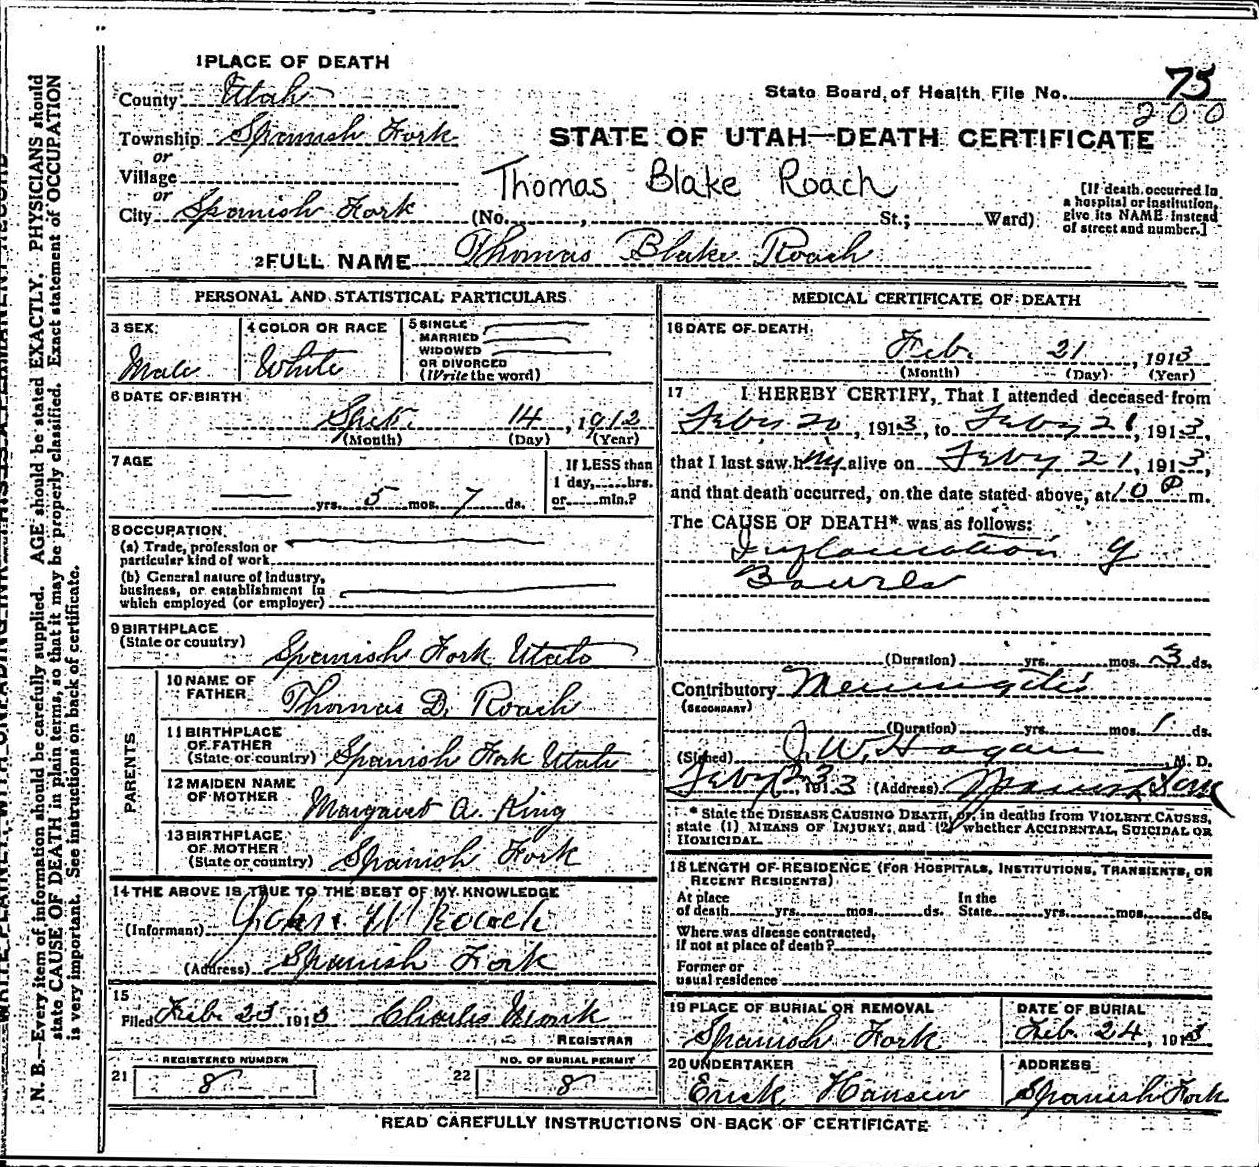 1 PLACE OF DEATH
County Utah
State Board of Health File No. 75
200
Township Spanish Fork
STATE OF UTAH—DEATH CERTIFICATE
or
Village
Thomas Blake Roach
or
City Spanish Fork (No. , St.; Ward)
[If death occurred in
a hospital or institution,
give its NAME instead
of street and number.]
2 FULL NAME Thomas Blake Roach
PERSONAL AND STATISTICAL PARTICULARS
3 SEX: Male
4 COLOR OR RACE White
5 SINGLE
MARRIED
WIDOWED
OR DIVORCED
(Write the word)
6 DATE OF BIRTH
Sept. 14, 1912
(Month) (Day) (Year)
7 AGE
yrs. 5 mos. 7 ds.
If LESS than
1 day, hrs.
or min.?
8 OCCUPATION
(a) Trade, profession or
particular kind of work
(b) General nature of industry,
business, or establishment in
which employed (or employer)
9 BIRTHPLACE
(State or country) Spanish Fork Utah
PARENTS
10 NAME OF
FATHER Thomas D. Roach
11 BIRTHPLACE
OF FATHER
(State or country) Spanish Fork Utah
12 MAIDEN NAME
OF MOTHER Margaret A. King
13 BIRTHPLACE
OF MOTHER
(State or country) Spanish Fork
14 THE ABOVE IS TRUE TO THE BEST OF MY KNOWLEDGE
(Informant) John W Roach
(Address) Spanish Fork
15
Filed Feb. 23 1913 Charles Monk
REGISTRAR
REGISTERED NUMBER
21 8
NO. OF BURIAL PERMIT
22 8
MEDICAL CERTIFICATE OF DEATH
16 DATE OF DEATH:
Feb. 21, 1913
(Month) (Day) (Year)
17 I HEREBY CERTIFY, That I attended deceased from
Feby 20, 1913, to Feby 21, 1913,
that I last saw him alive on Feby 21, 1913,
and that death occurred, on the date stated above, at 10 P m.
The CAUSE OF DEATH* was as follows:
Inflamation of
Bowels
(Duration) yrs. mos. 3 ds.
Contributory Meningitis
(SECONDARY)
(Duration) yrs. mos. 1 ds.
(Signed) J. W. Hagan M. D.
Feby 23, 1913 (Address) Spanish Fork
* State the DISEASE CAUSING DEATH, or, in deaths from VIOLENT CAUSES,
state (1) MEANS OF INJURY; and (2) whether ACCIDENTAL, SUICIDAL OR
HOMICIDAL.
18 LENGTH OF RESIDENCE (FOR HOSPITALS, INSTITUTIONS, TRANSIENTS, OR
RECENT RESIDENTS)
At place
of death yrs. mos. ds.
In the
State yrs. mos. ds.
Where was disease contracted,
if not at place of death?
Former or
usual residence
19 PLACE OF BURIAL OR REMOVAL
Spanish Fork
DATE OF BURIAL
Feb. 24, 1913
20 UNDERTAKER
Erick Hansen
ADDRESS
Spanish Fork
READ CAREFULLY INSTRUCTIONS ON BACK OF CERTIFICATE
N. B.—Every item of information should be carefully supplied. AGE should be stated EXACTLY. PHYSICIANS should
state CAUSE OF DEATH in plain terms, so that it may be properly classified. Exact statement of OCCUPATION
is very important. See instructions on back of certificate.